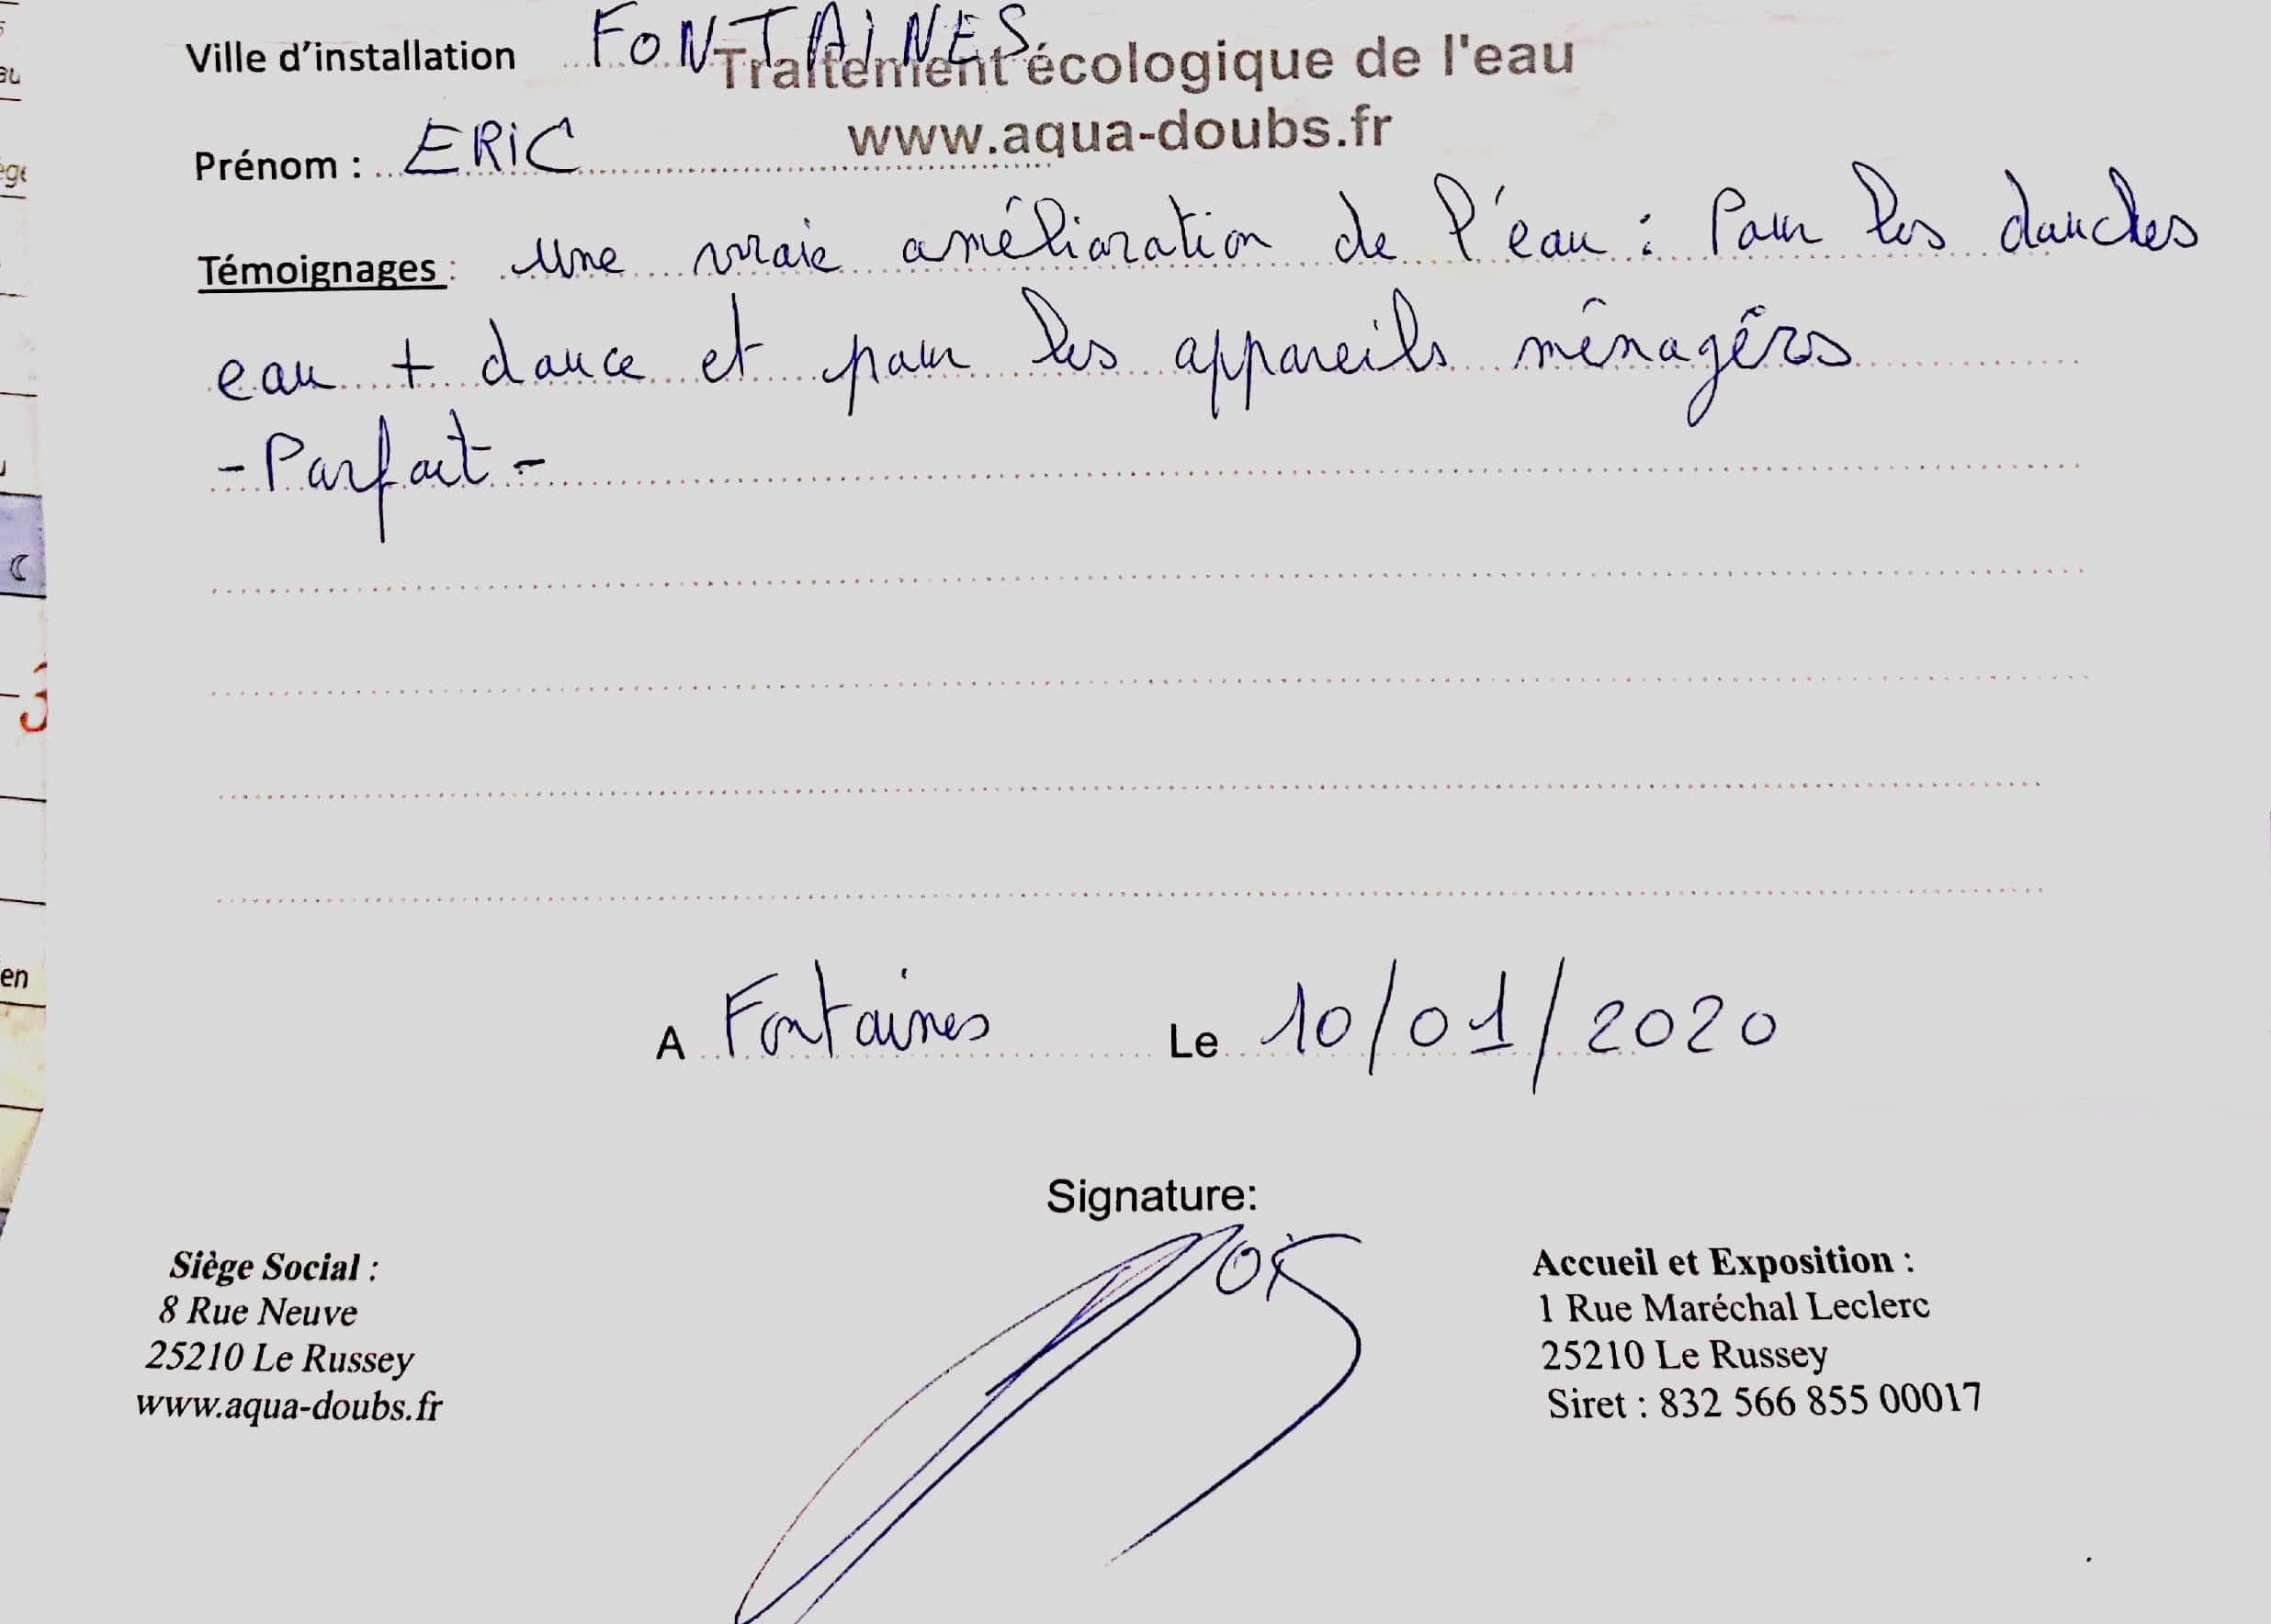 Ville d'installation FONTAINES
Traitement écologique de l'eau
www.aqua-doubs.fr
Prénom : ERIC
Témoignages : Une vraie amélioration de l'eau : Pour les douches
eau + douce et pour les appareils ménagérs
- Parfait -
A Fontaines Le 10/01/2020
Signature:
Siège Social :
8 Rue Neuve
25210 Le Russey
www.aqua-doubs.fr
Accueil et Exposition :
1 Rue Maréchal Leclerc
25210 Le Russey
Siret : 832 566 855 00017